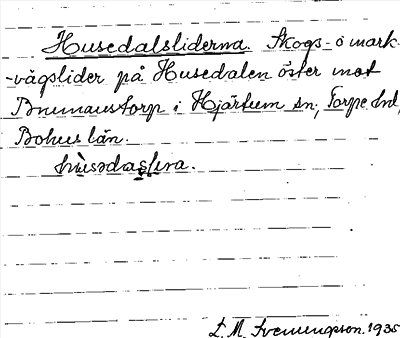 Husedalsliderna. Skogs- o mark-
-vägslider på Husedalen öster mot
Brunnanstorp i Hjärtum sn, Torpe hd,
Bohus län.
L. M. Svenungsson. 1935